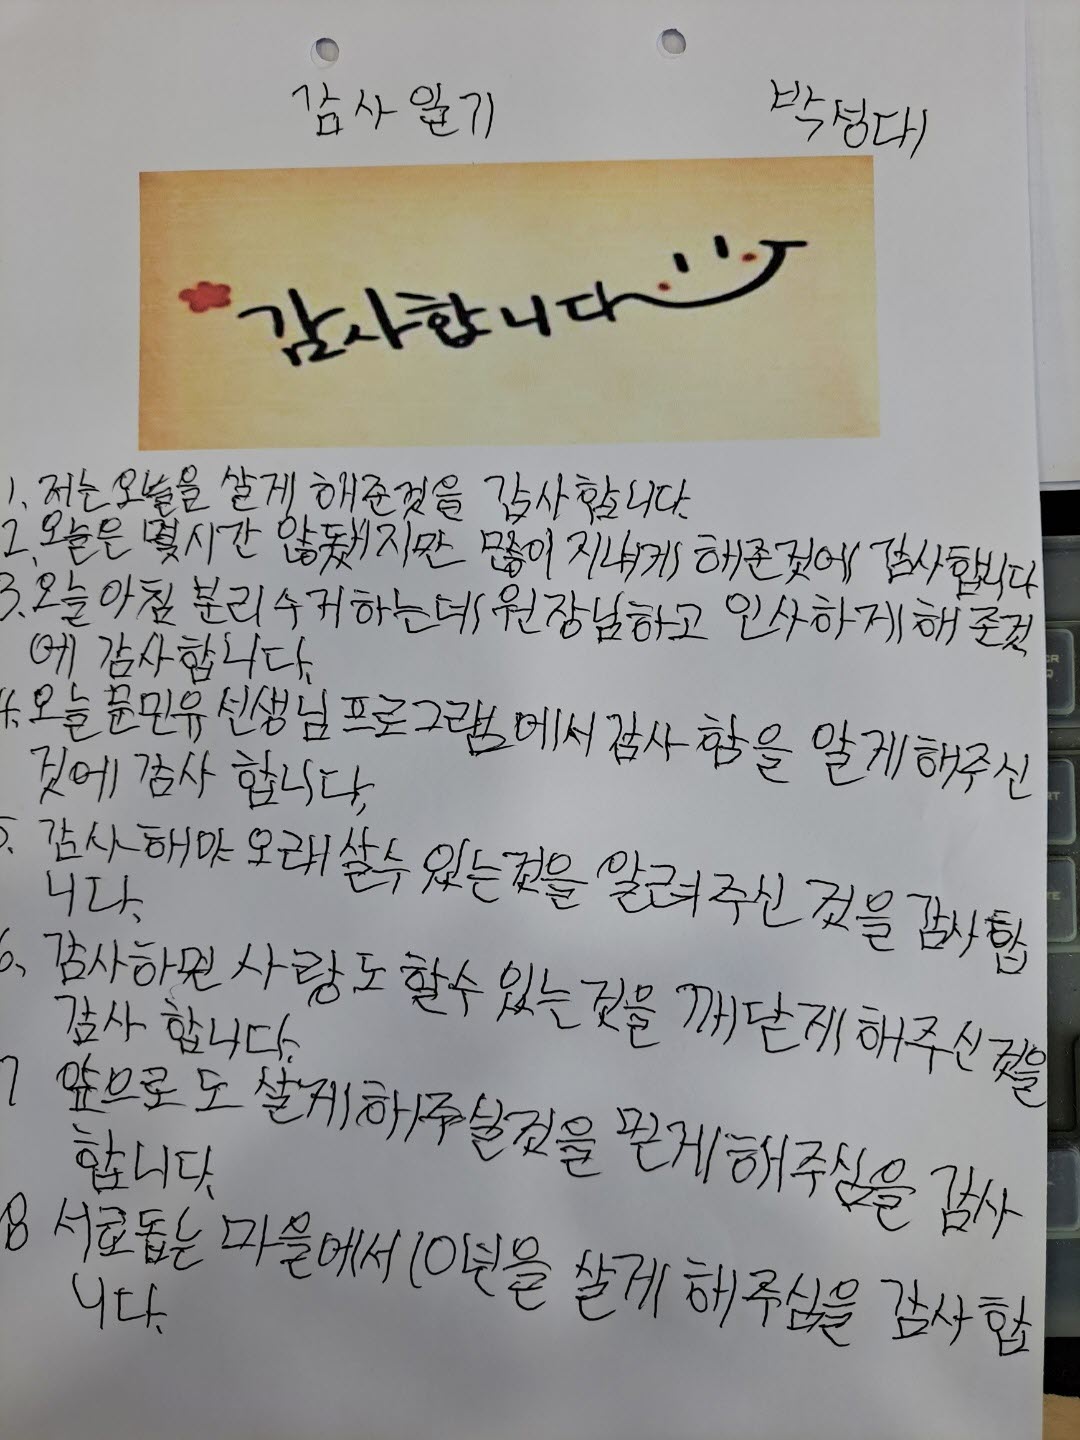 감사일기 박성대
감사합니다
1. 저는 오늘을 살게 해준것을 감사합니다.
2. 오늘은 몇시간 않됐지만 많이 지내게 해준것에 감사합니다
3. 오늘 아침 분리수거하는데 원장님하고 인사하게 해준것
에 감사합니다.
4. 오늘 문민유 선생님 프로그램에서 감사함을 알게 해주신
것에 감사 합니다.
5. 감사해야 오래 살수 있는것을 알려주신 것을 감사합
니다.
6. 감사하면 사랑도 할수 있는 것을 깨닫게 해주신것을
감사 합니다.
7 앞으로 도 살게 해주실것을 믿게 해주심을 감사
합니다.
8 서로돕는 마을에서 10년을 살게 해주심을 감사합
니다.